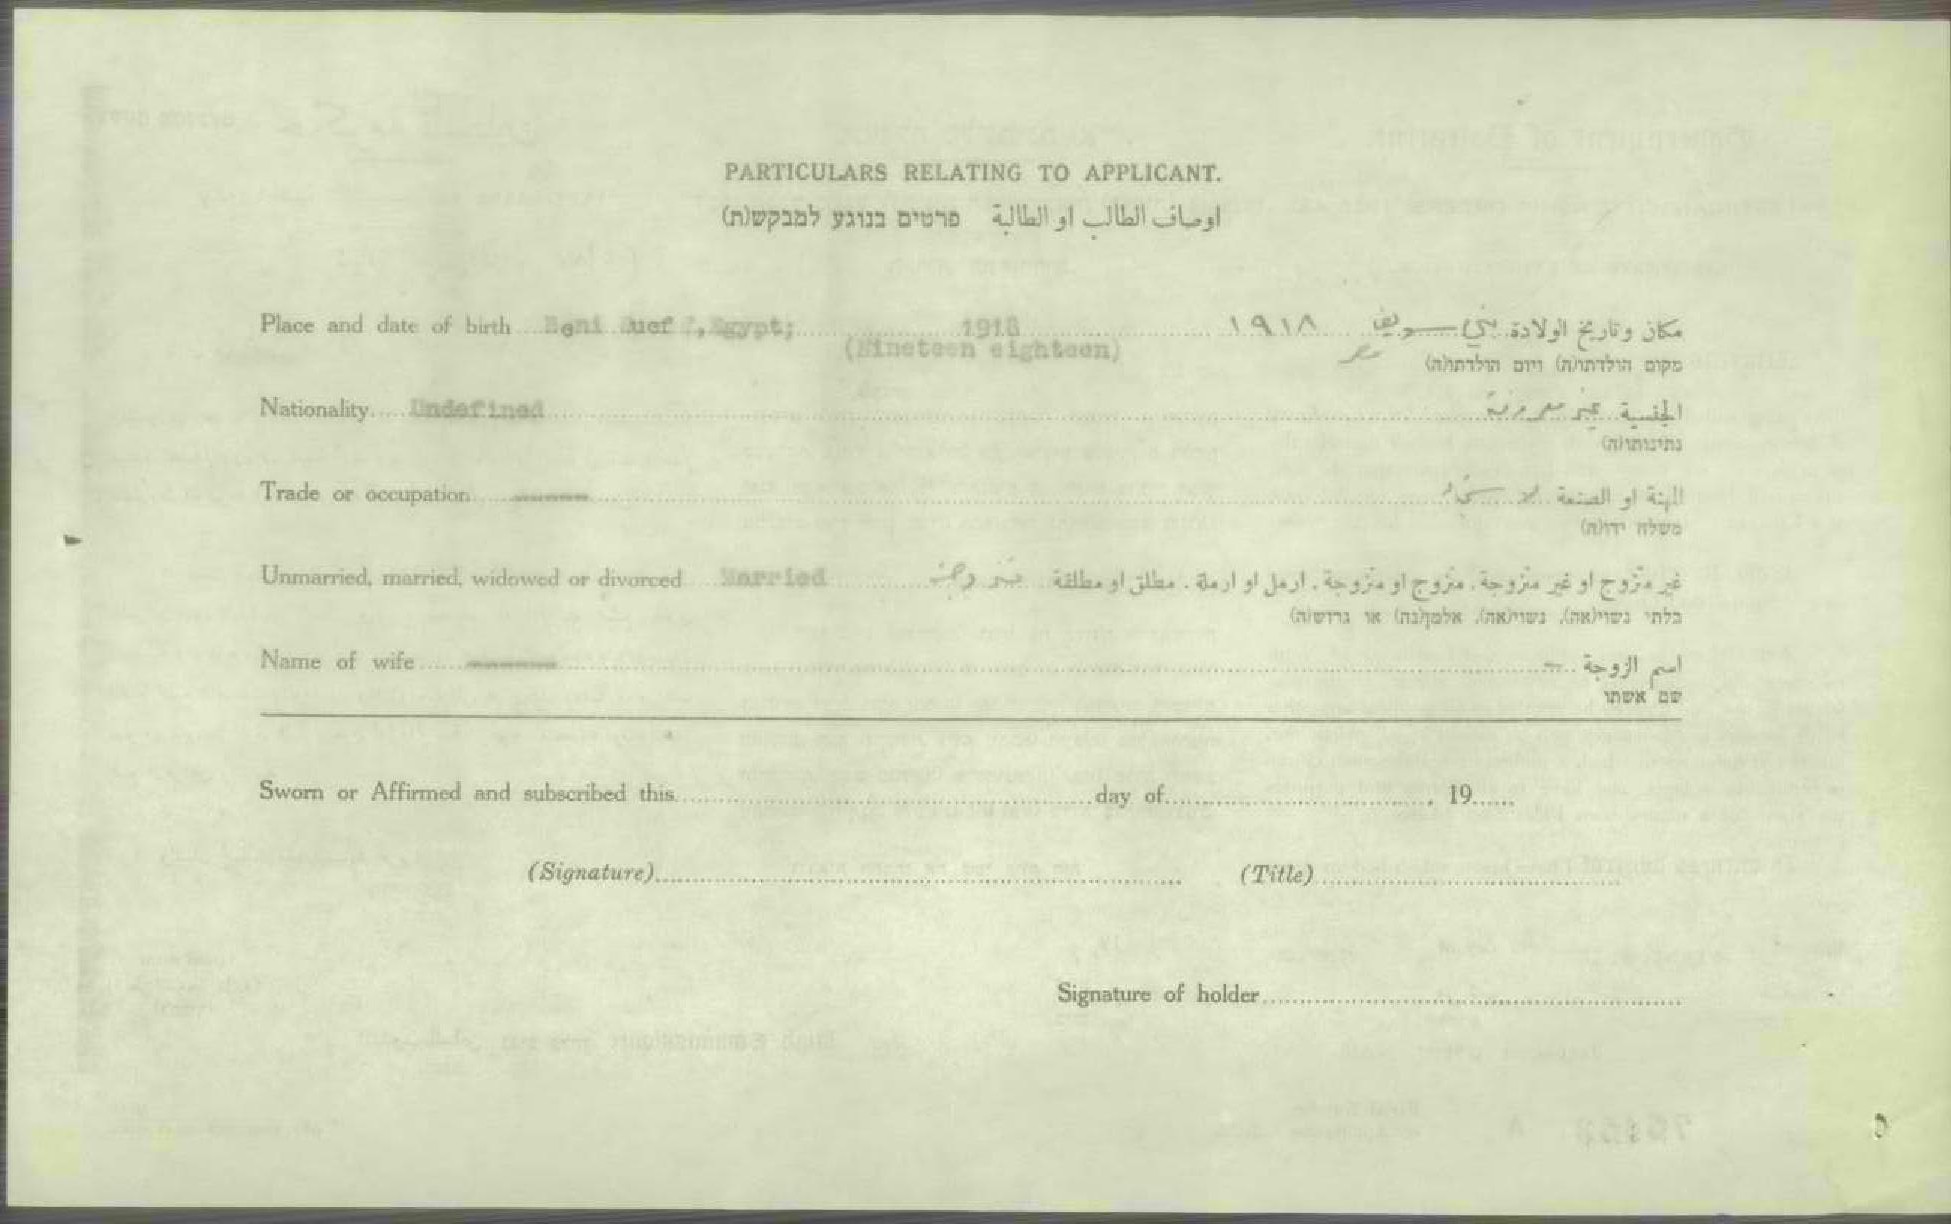 PARTICULARS RELATING TO APPLICANT.
اوصاف الطالب او الطالبة פרטים בנוגע למבקש(ת)
Place and date of birth Beni Suef, Egypt; 1918 ١٩١٨ بني سويف مكان وتاريخ الولادة
(Nineteen eighteen) مصر מקום הולדתו(ה) ויום הולדתו(ה)
Nationality Undefined الجنسية غير معروفة
נתינותו(ה)
Trade or occupation المهنة او الصنعة لا
משלח ידו(ה)
Unmarried, married, widowed or divorced Married غير متزوج او غير متزوجة، متزوج او متزوجة، ارمل او ارملة، مطلق او مطلقة
בלתי נשוי(אה), נשוי(אה), אלמן(נה) או גרוש(ה)
Name of wife اسم الزوجة -
שם אשתו
Sworn or Affirmed and subscribed this day of , 19
(Signature) (Title)
Signature of holder